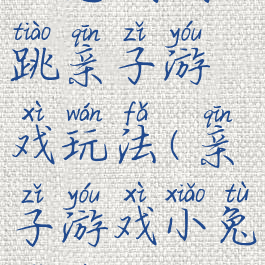 tiào qīn zǐ yóu
跳亲子游
xì wán fǎ qīn
戏玩法(亲
zǐ yóu xì xiǎo tù
子游戏小兔